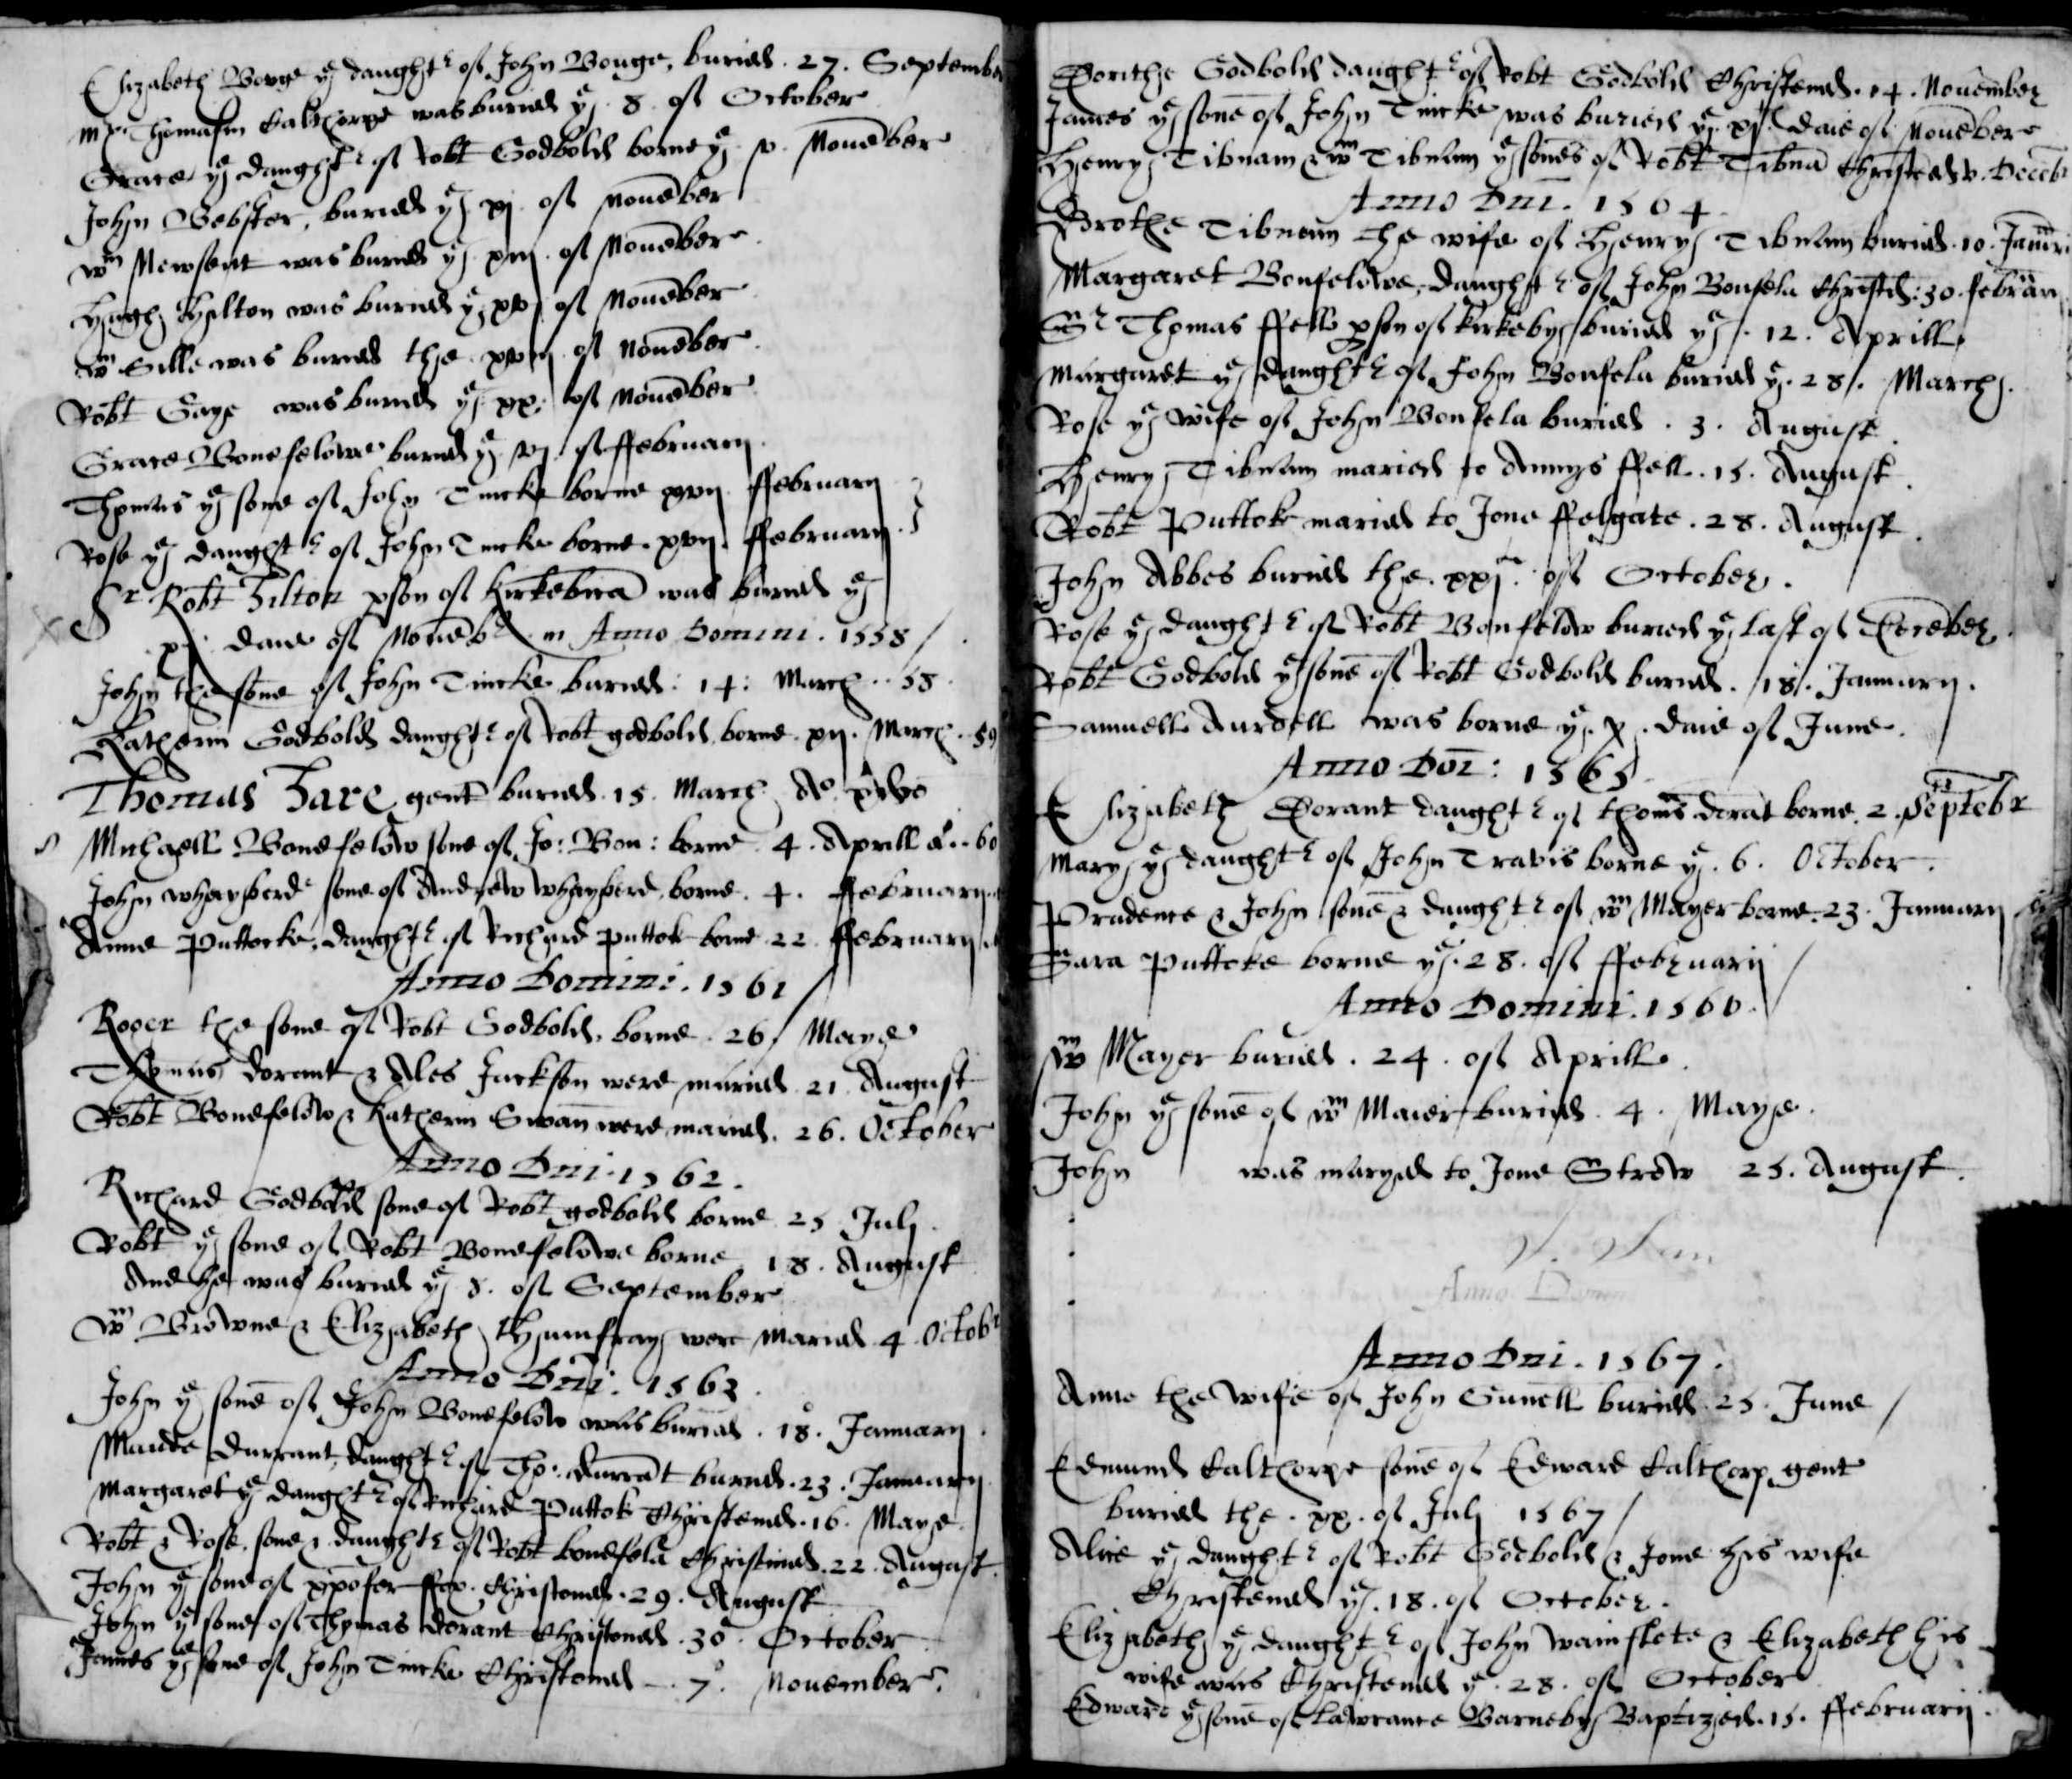 Elizabeth Bonge yͤ daughtʳ of John Bonge, buried . 27 . September
mʳⁱˢ Thomasin Calthorpe was buried yͤ . 8 . of October
Grace yͤ daughtʳ of Robt Godbold borne yͤ . v . Novēber
John Webster, buried yͤ xj of Novēber
Wᵐ Mewsent was buried yͤ . xiij . of Novēber
Hugh Hilton was buried yͤ xvj of Novēber
Wᵐ Sille was buried the . xviij . of Novēber
Robt Gaye was buried yͤ . xx . of Novēber
Grace Bonefelowe buried yͤ vj . of ffebruarij
Thomas yͤ sone of John Tincke borne xvij ffebruarij
Rose yͤ daughtʳ of John Tincke borne . xvij . ffebruarij
Sʳ Robt Hilton pson of Kirkebyca was buried yͤ
xj . daie of Novēbʳ in Anno Domini . 1558 /
John the sone of John Tincke buried : 14 : March .. 58 .
Katherin Godbold daughtʳ of Robt godbold borne . xij . March . 59
Thomas Hare gent buried . 15 . March Ao
Michaell Bonefelow sone of Jo: Bon: borne 4 . Aprill a .. 60
John whayberd sone of Andrew whayberd borne . 4 . ffebruarij
Anne Puttocke, daughtʳ of Richard puttok borne 22 ffebruarij
Anno Domini . 1561 /
Roger the sone of Robt Godbold, borne . 26 / Maye
Thomas dorant & Ales Jackson were maried 21 August
Robt Bonefelow & Katherin Swan were maried . 26 . October
Anno Dni . 1562 .
Richard Godbold sone of Robt godbold borne 25 July
Robt yͤ sone of Robt Bonefelowe borne 18 . August
And he was buried yͤ 8 . of September
Wᵐ Browne & Elizabeth Humfray were maried 4 Octobʳ
Anno Dni . 1563 .
John yͤ sone of John Bonefelow was buried . 18 . Januarij .
Maude Durrant, daughtʳ of Tho: durrāt buried . 23 . Januarij
Margaret yͤ daughtʳ of Richard Puttok Christened . 16 . Maye .
Robt & Rose, sone & daughtʳ of Robt bonefela Christined . 22 . August .
John yͤ sone of xpofer ffox . Christoned . 29 . August
John yͤ sone of Thomas dorant Christoned . 30 . October
James yͤ sone of John Tincke Christoned — . 7 . November .
Dorithe Godbold daughtʳ of Robt Godbold Christened . 14 . November
James yͤ sone of John Tincke was buried yͤ . xj . daie of Novēber
Henry Tibnam & Wᵐ Tibnam yͤ sones of Robt Tibnā Christēed v . Decēbʳ
Anno Dni . 1564 .
Drothe Tibnam the wife of Henry Tibnam buried . 10 . Januarij
Margaret Bonfelowe, daughtʳ of John Bonfela Christed : 30 . febrarij
Sʳ Thomas ffell pson of Kirkeby buried yͤ . 12 . Aprill
Margaret yͤ daughtʳ of John Bonfela buried yͤ . 28 . March .
Rose yͤ wife of John Bonfela buried . 3 . August .
Henry Tibnam maried to Annys ffell . 15 . August .
Robt Puttok maried to Jone ffelgate . 28 . August .
John Abbes buried the . xxj . of October .
Rose yͤ daughtʳ of Robt Bonfelow buried yͤ last of Decēber .
Robt Godbold yͤ sone of Robt Godbold buried . 18 . Januarij .
Samuell Aurdell was borne yͤ . x . daie of June .
Anno Doī : 1565
Elizabeth Dorant daughtʳ of thomˢ dorāt borne . 2 . Septēbr
Mary yͤ daughtʳ of John Travis borne yͤ . 6 . October .
Prudence & John sone & daughtʳ of Wᵐ Mayer borne . 23 . Januarij
Sara Puttoke borne yͤ . 28 . of ffebruarij /
Anno Domini . 1566 .
Wᵐ Mayer buried . 24 . of Aprill .
John yͤ sone of Wᵐ Maier buried . 4 . Maye .
John was maryed to Jone Strow 25 . August .
Anno Dni . 1567 .
Anne the wife of John Gunell buried . 25 . June /
Edmund Calthorpe sone of Edward Calthorp gent
buried the . xx . of July 1567 /
Alice yͤ daughtʳ of Robt Godbold & Jone his wife
Christened yͤ . 18 . of October .
Elizabeth yͤ daughtʳ of John Wainflete & Elizabeth his
wife was Christened yͤ . 28 . of October
Edward yͤ sone of Lawrance Barneby Baptized . 15 . ffebruarij .